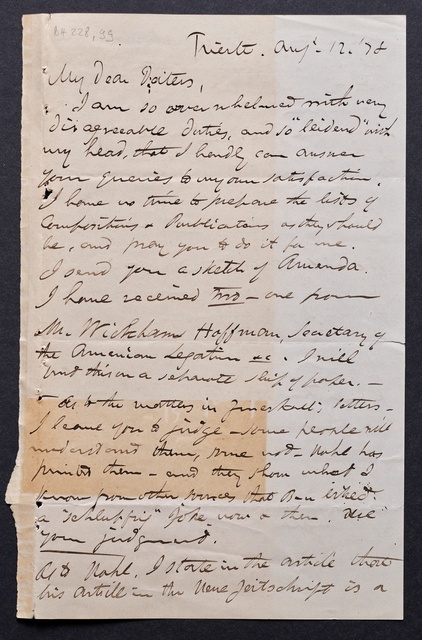 BH 228, 99
Trieste. Aug. 12. '78
My Dear Deiters,
I am so overwhelmed with very
disagreeable duties, and so "leidend" with
my head, that I hardly can answer
your queries to my own satisfaction.
I have no time to prepare the lists of
Compositions & Publications as they should
be, and pray you to do it for me.
I send you a sketch of Amenda.
I have received two – one from
Mr. Wickham Hoffman, Secretary of
the American Legation &c. I will
put this on a separate slip of paper. –
As to the matters in letters –
I leave you to judge – some people will
understand them, some not – Nohl has
printed them – and they show what I
know from other sources that B–n liked
a "schlüpfrig" joke now & then. Use
your judgment.
As to Nohl, I state in the article that
his article in the Neue Zeitschrift is a